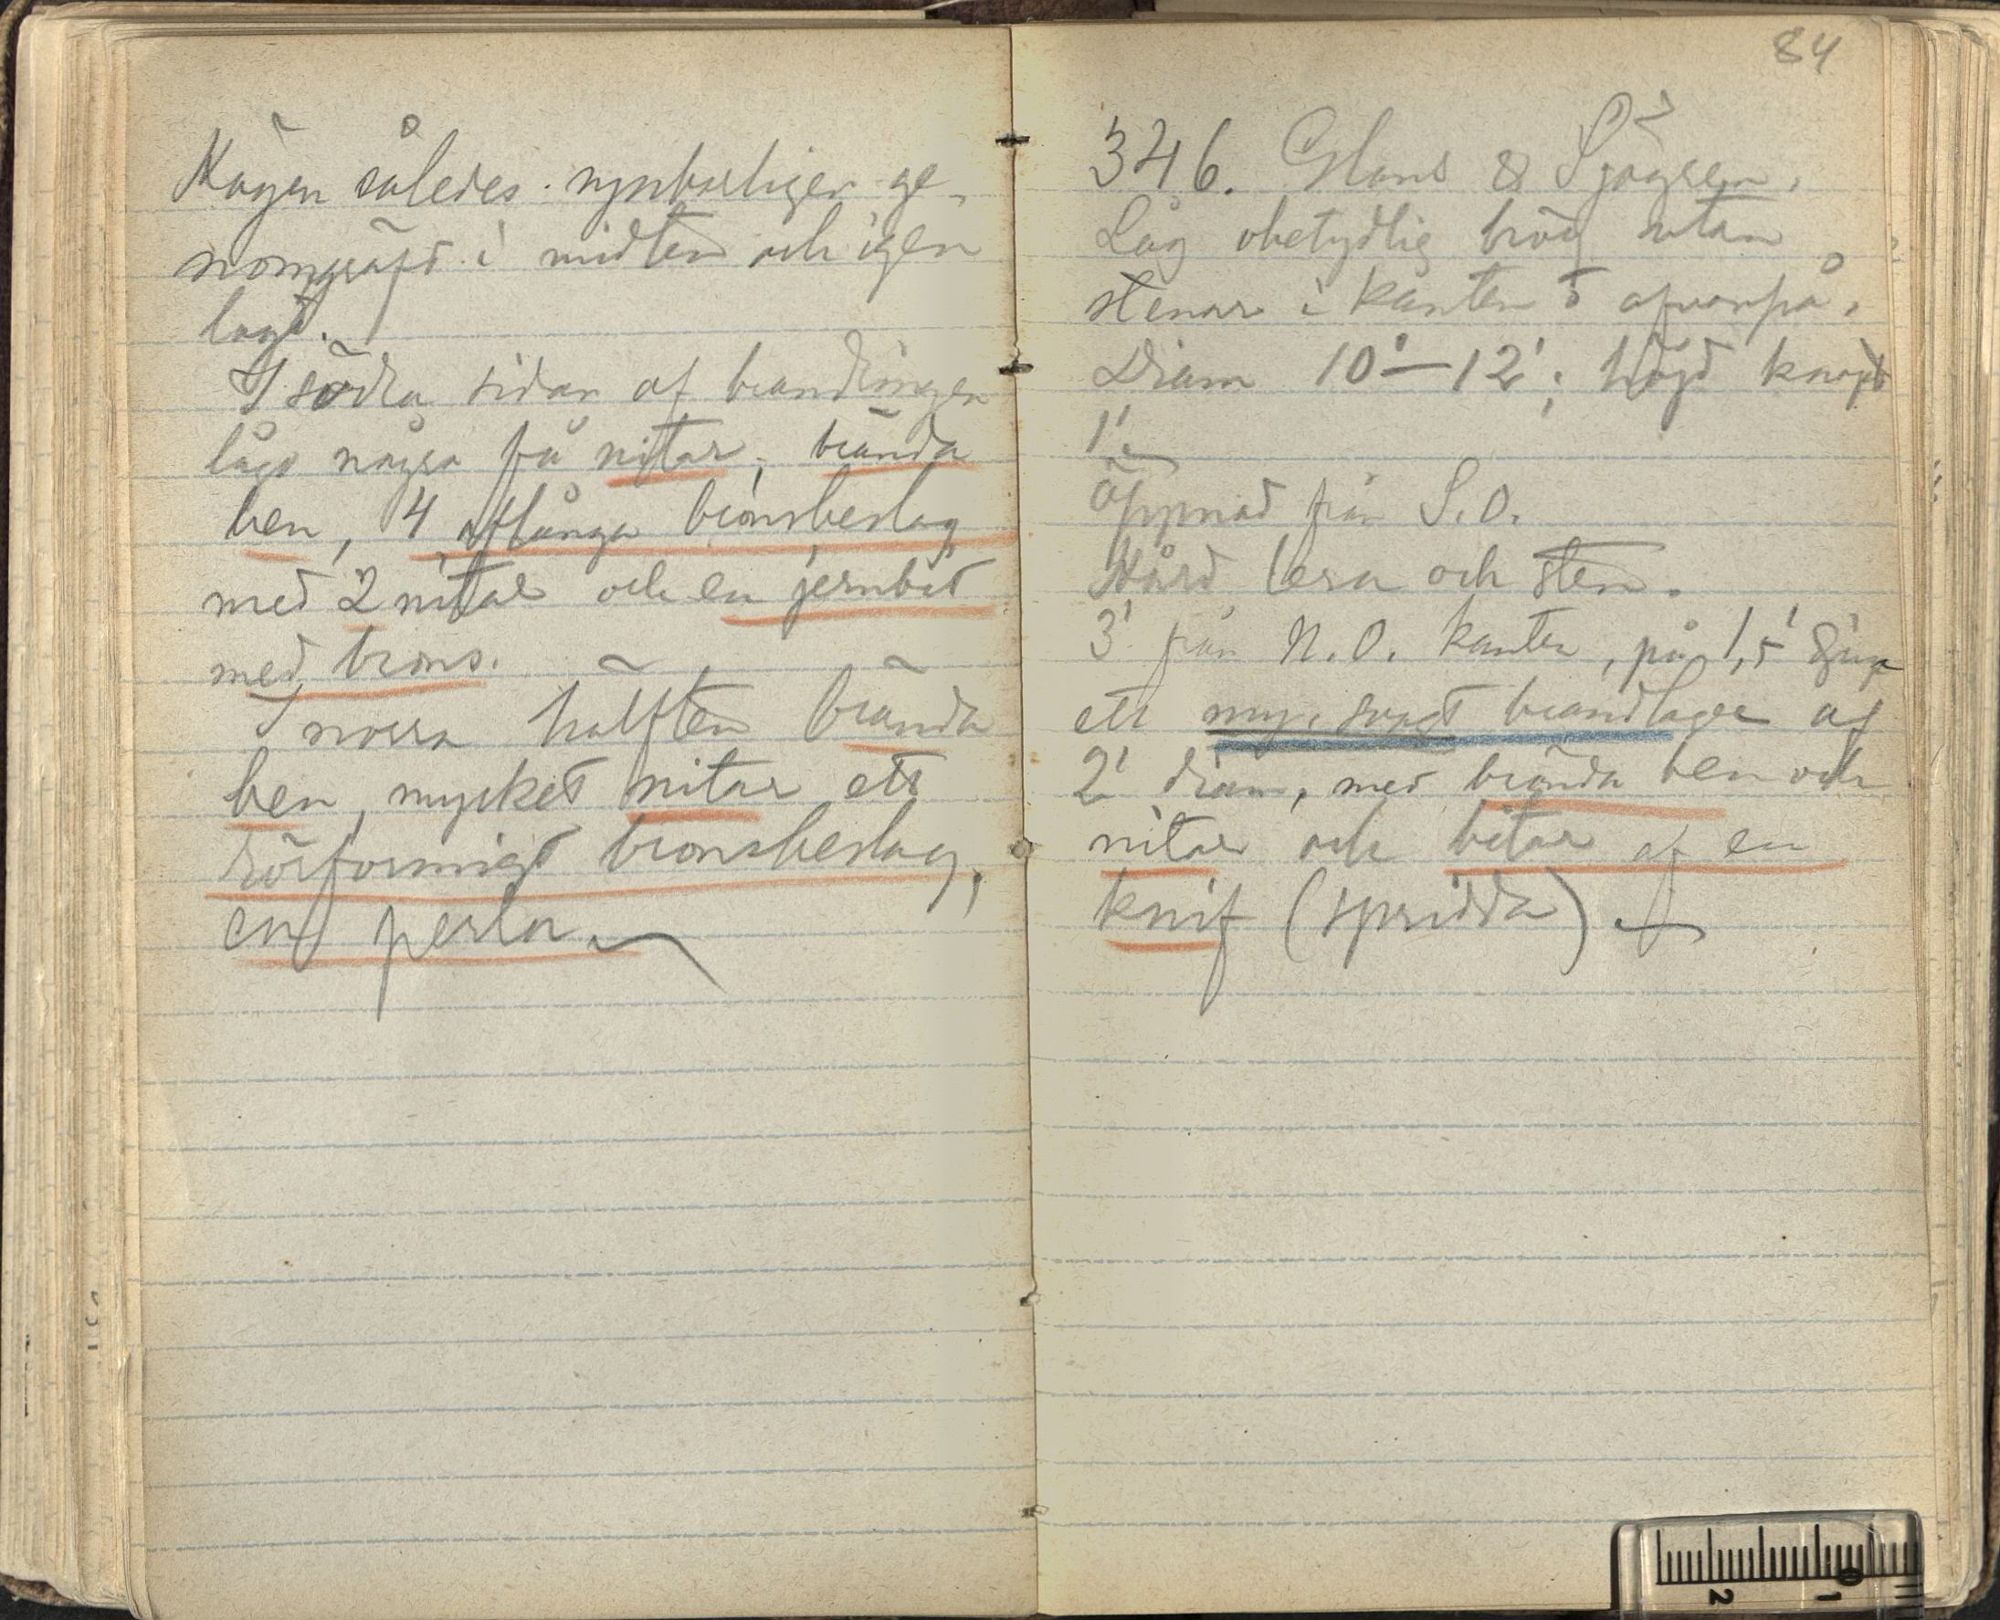 Högen således synbarligen ge-
nomgräfd i midten och igen
lagd.
I södra sidan af brandringen
lågo några få nitar, brända
ben, 4 aflånga bronsbeslag
med 2 nitar och en jernbit
med brons.
I norra hälften brända
ben, mycket nitar ett
rörformigt bronsbeslag,
en perla
84
346. Hans & Sjögren.
Låg obetydlig hög utan
stenar i kanten o ofvanpå.
Diam 10'–12'; höjd knapt
1'.
Öppnad från S.O.
Hård lera och sten.
3' från N.O. kanten, på 1,5' djup
ett my. svagt brandlager af
2' diam, med brända ben och
nitar och bitar af en
knif (spridda)
2
1
0